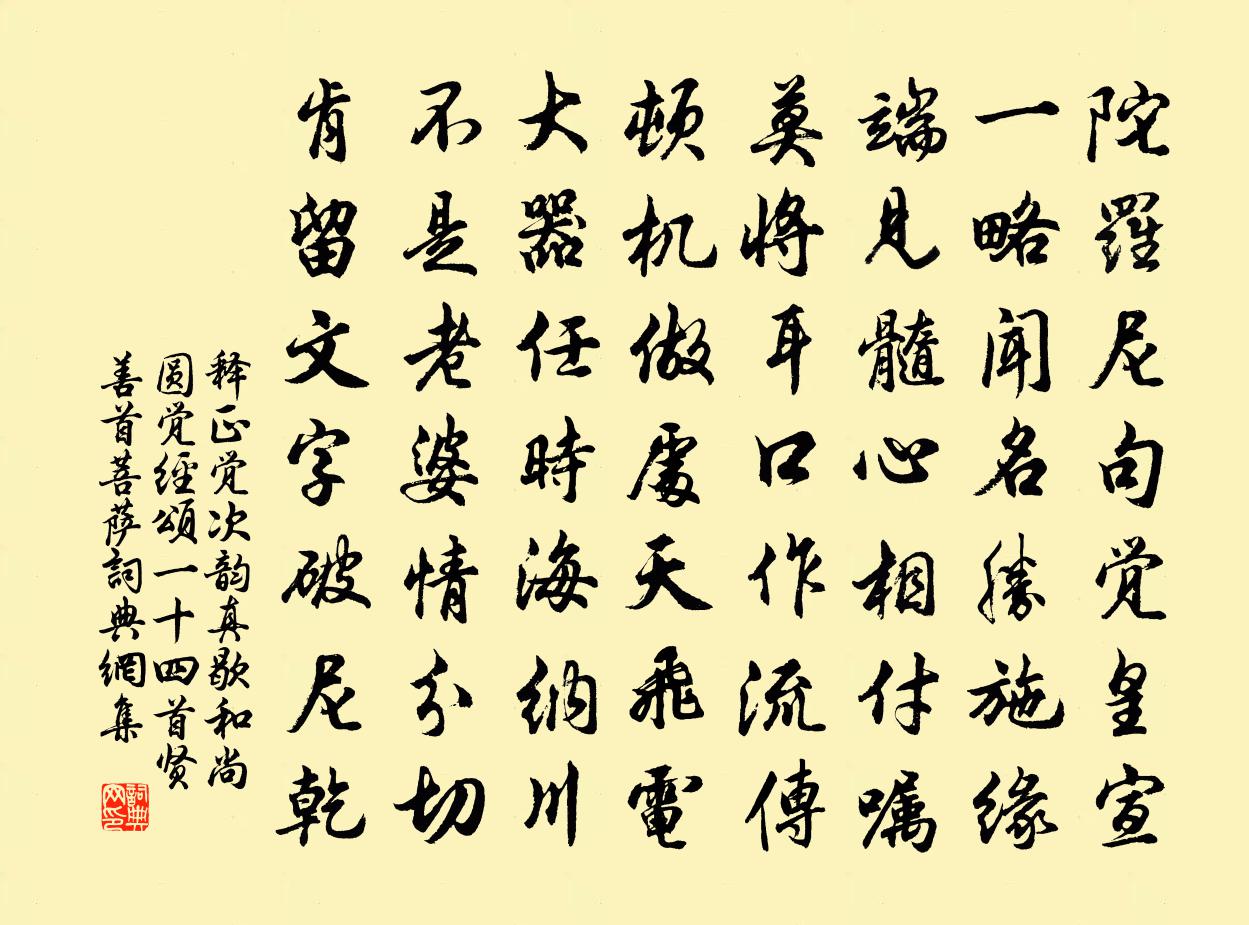 陀羅尼句觉皇宣
一略闻名勝施緣
端見髓心相付嘱
莫將耳口作流傳
頓机做處天飛電
大器任時海納川
不是老婆情分切
肯留文字破尼乾
释正觉次韵真歇和尚
圆觉經頌一十四首贤
善首菩萨詞典網集
詞典网印